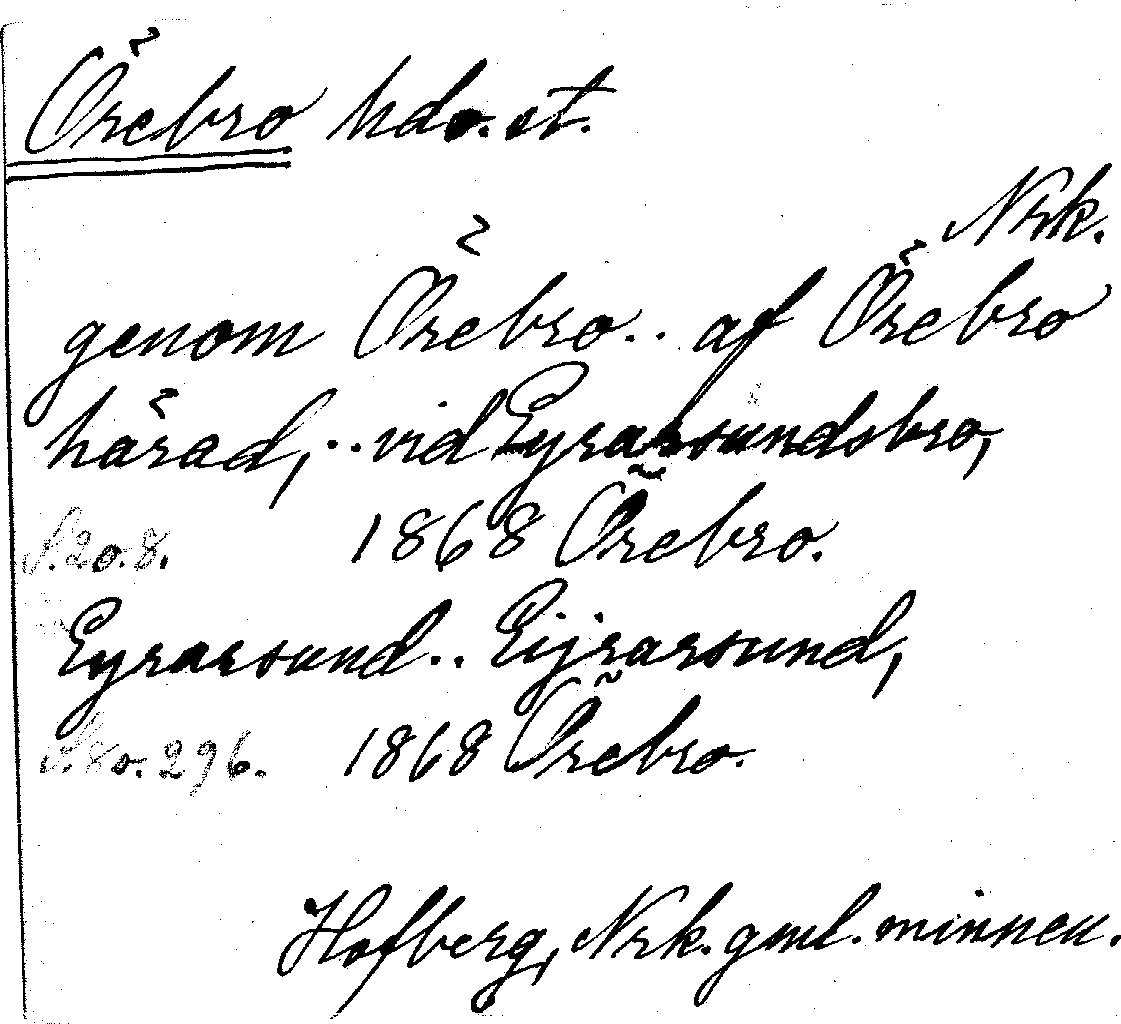 Örebro hdo. st.
Nrk.
genom Örebro.. af Örebro
härad,.. vid Eyrarsundsbro,
S. 20. 8. 1868 Örebro.
Eyrarsund.. Eijrarsund,
S. 80. 296. 1868 Örebro.
Hofberg, Nrk. gml. minnen.